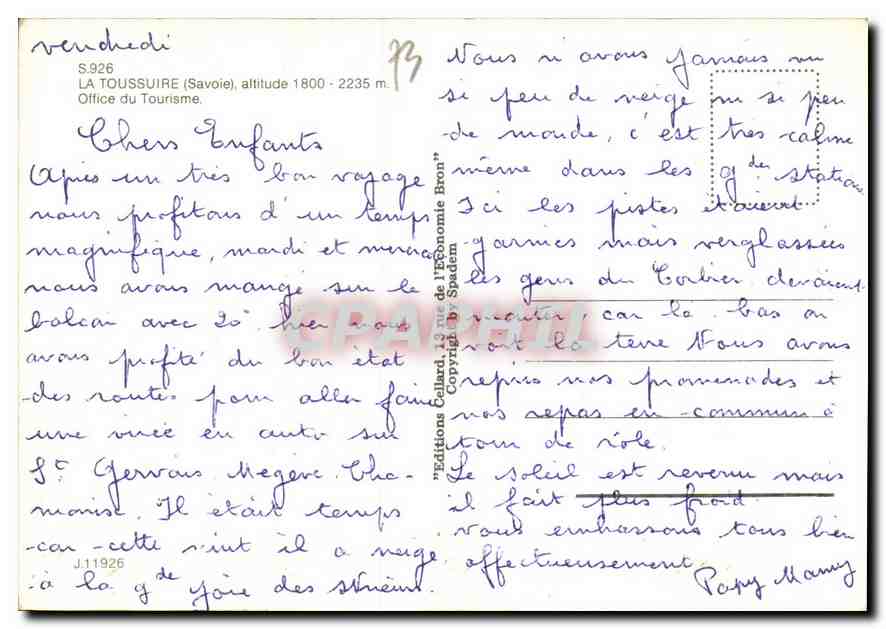 vendredi
73
S.926
LA TOUSSUIRE (Savoie), altitude 1800 - 2235 m.
Office du Tourisme.
Chers Enfants
Après un très bon voyage
nous profitons d'un temps
magnifique, mardi et mercredi
nous avons mangé sur le
balcon avec 20° hier nous
avons profité du bon état
des routes pour aller faire
une virée en auto sur
St Gervais Megève Cha-
monix. Il était temps
car cette nuit il a neigé
à la gde joie des skieurs.
J.11926
"Editions Cellard, 13 rue de l'Economie Bron"
Copyright by Spadem
CPAPHIL
Nous n'avons jamais vu
si peu de neige ni si peu
de monde, c'est très calme
même dans les gdes stations
Ici les pistes étaient
garnies mais verglassées
les gens du Corbier devaient
monter, car là bas on
voit la terre Nous avons
repris nos promenades et
nos repas en commun à
tour de rôle.
Le soleil est revenu mais
il fait plus froid.
Vous embrassons tous bien
affectueusement
Papy Mamy